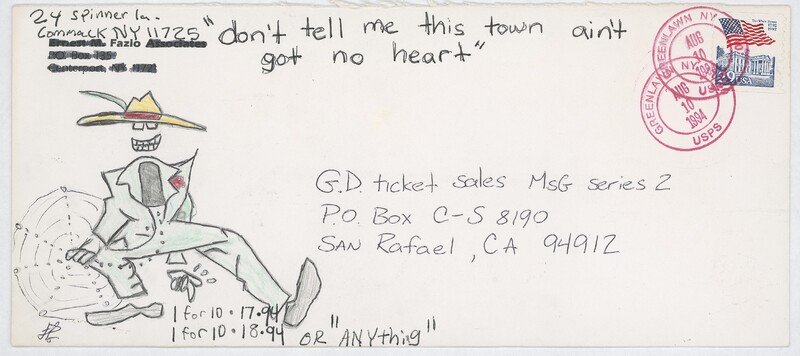 24 Spinner Ln.
Commack NY 11725
Ernest M. Fazio Associates
P.O. Box 135
Centerport, NY 11721
"don't tell me this town ain't
got no heart"
GREENLAWN NY
AUG
10
USPS
GREENLAWN NY
AUG
10
1994
USPS
29 USA
G.D. ticket sales MSG series 2
P.O. Box C-S 8190
SAN Rafael, CA 94912
1 for 10.17.94
1 for 10.18.94 OR "ANYthing"